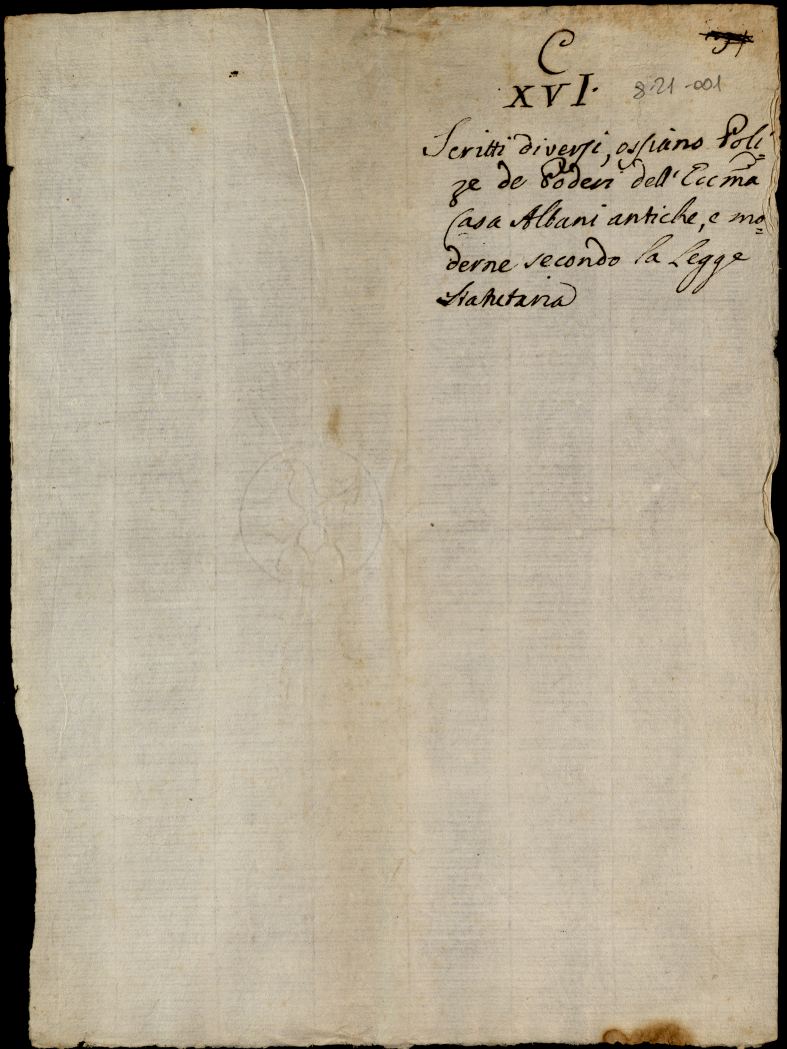 C
XVI.
8-21-001
Scritti diversi, ossiano Poli=
ze de Poderi dell' Eccma
Casa Albani antiche, e mo=
derne secondo la Legge
Statutaria